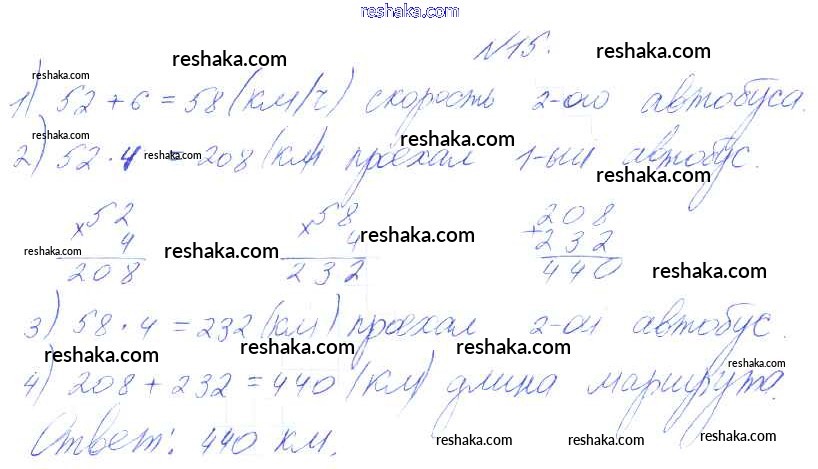 reshaka.com
№15.
reshaka.com reshaka.com
reshaka.com
1) 52 + 6 = 58 (км/ч) скорость 2-ого автобуса.
reshaka.com
2) 52 · 4 = 208 (км) проехал 1-ый автобус.
reshaka.com reshaka.com
×52 ×58 +208
4 4 232
reshaka.com reshaka.com reshaka.com
208 232 440
reshaka.com
3) 58 · 4 = 232 (км) проехал 2-ой автобус.
reshaka.com reshaka.com reshaka.com
reshaka.com
4) 208 + 232 = 440 (км) длина маршрута.
Ответ: 440 км.
reshaka.com reshaka.com reshaka.com